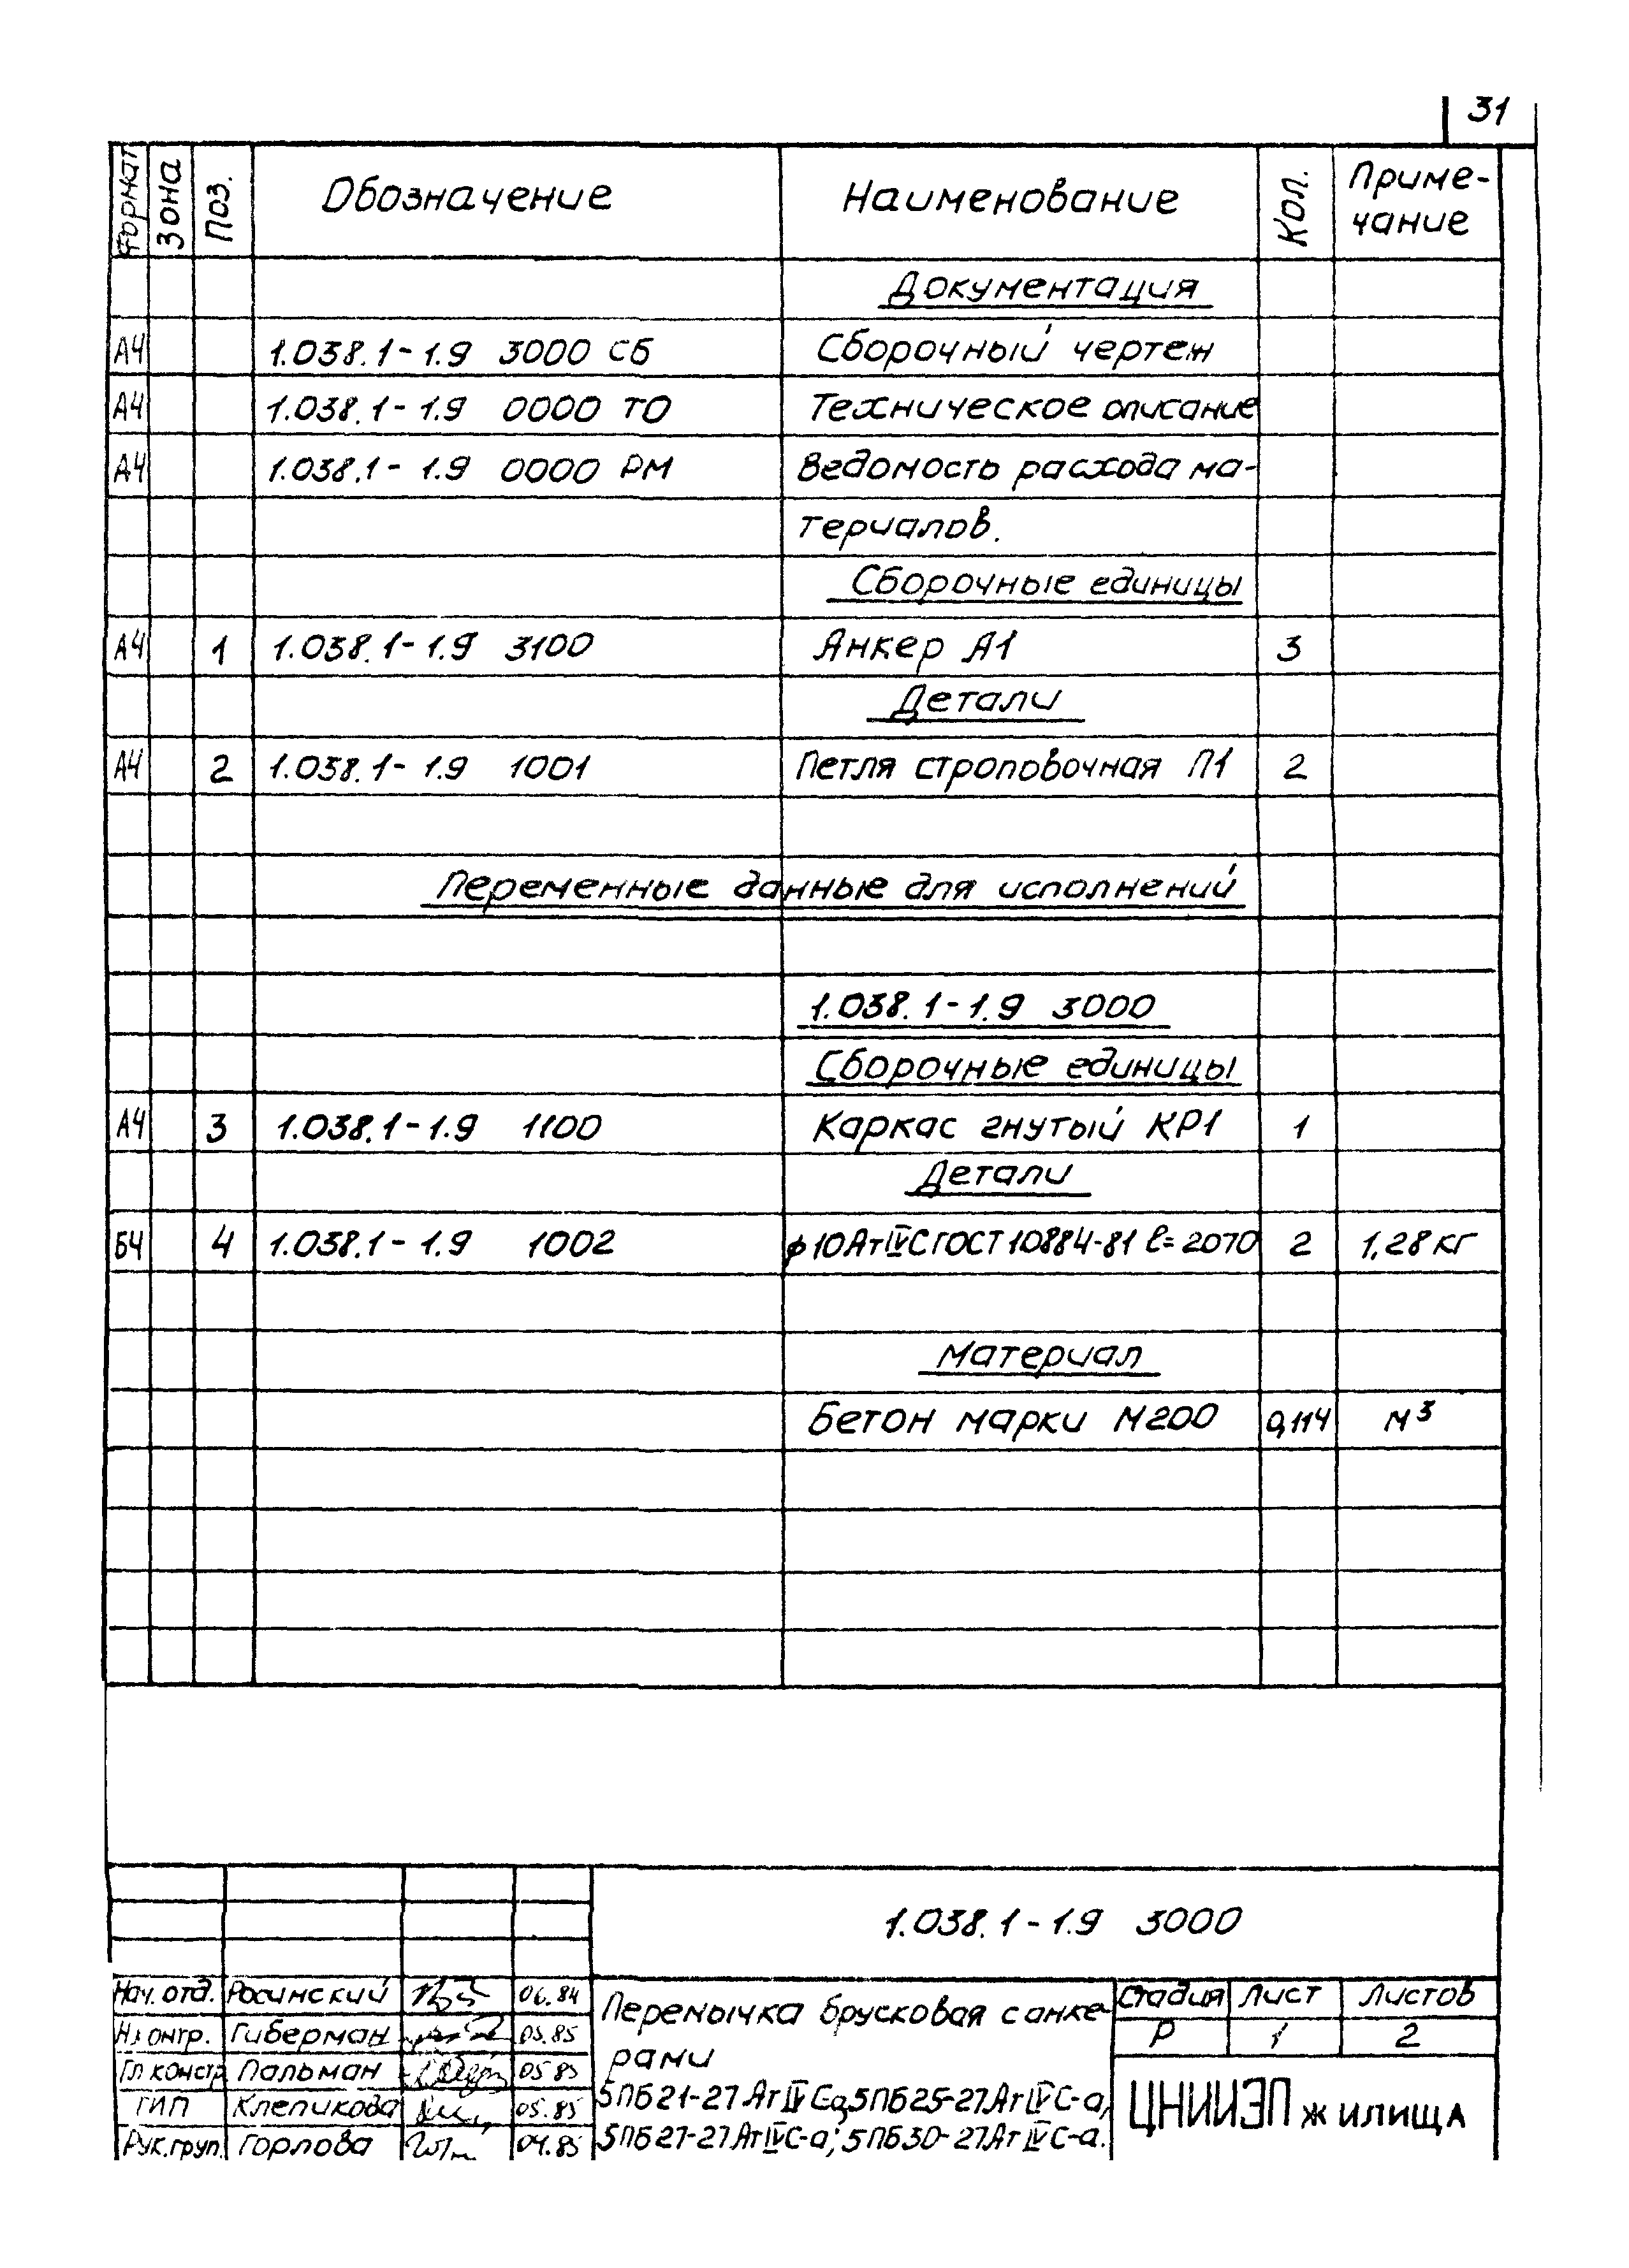 31
Формат Зона Поз. Обозначение Наименование Кол. Приме-
чание
Документация
А4 1.038.1-1.9 3000 СБ Сборочный чертеж
А4 1.038.1-1.9 0000 ТО Техническое описание
А4 1.038.1-1.9 0000 РМ Ведомость расхода ма-
териалов.
Сборочные единицы
А4 1 1.038.1-1.9 3100 Анкер А1 3
Детали
А4 2 1.038.1-1.9 1001 Петля строповочная П1 2
Переменные данные для исполнений
1.038.1-1.9 3000
Сборочные единицы
А4 3 1.038.1-1.9 1100 Каркас гнутый КР1 1
Детали
БЧ 4 1.038.1-1.9 1002 ф10АтIVС ГОСТ 10884-81 ℓ=2070 2 1,28 кг
Материал
Бетон марки М200 0,114 м³
1.038.1-1.9 3000
Нач. отд. Росинский 06.84
Н.контр. Гиберман 05.85
Гл констр Пальман 05 85
ГИП Клепикова 05.85
Рук.груп. Горлова 04.85
Перемычка брусковая с анке-
рами
5ПБ21-27АтIVС-а, 5ПБ25-27АтIVС-а,
5ПБ27-27АтIVС-а; 5ПБ30-27АтIVС-а.
Стадия Лист Листов
Р 1 2
ЦНИИЭП жилища